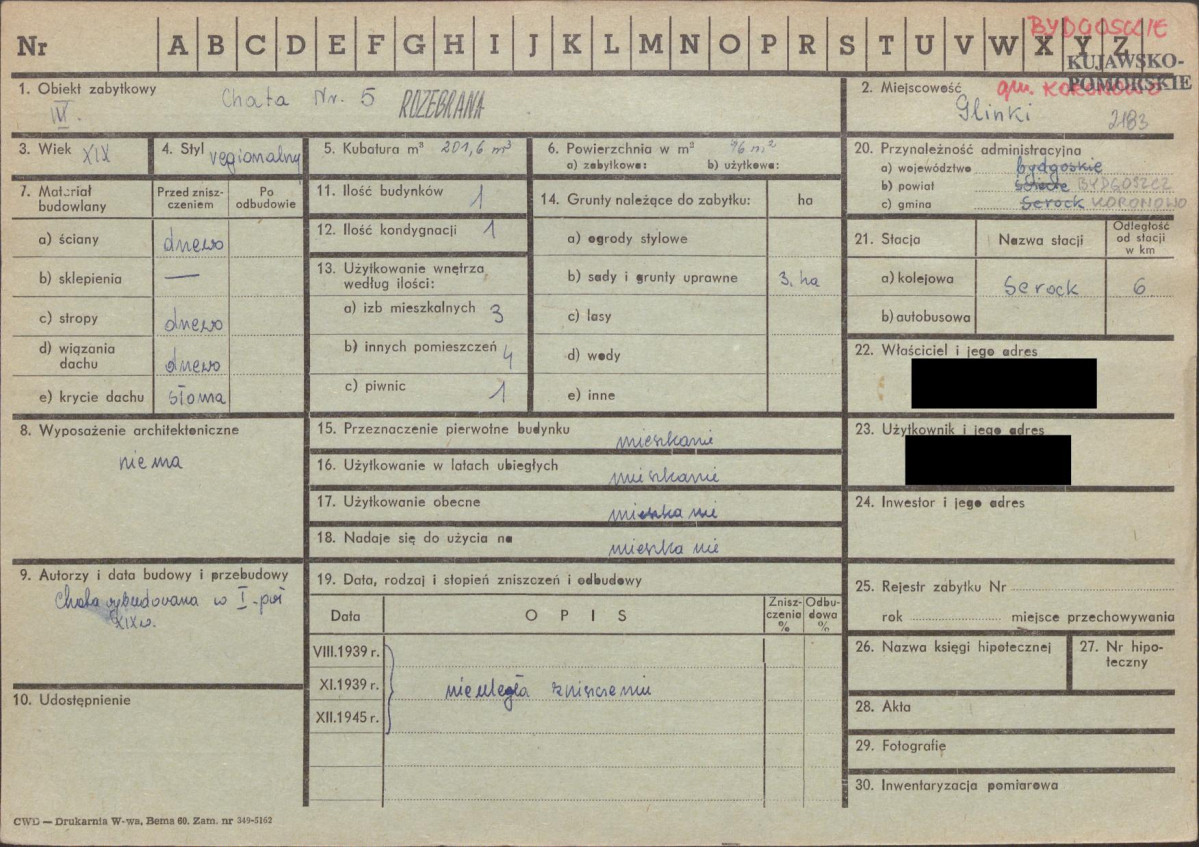 Nr A B C D E F G H I J K L M N O P R S T U V W X Y Z
BYDGOSCIE
KUJAWSKO-
POMORSKIE
1. Obiekt zabytkowy Chata Nr. 5 ROZEBRANA
IV.
2. Miejscowość gm. KORONOWO
Glinki 2183
3. Wiek XIX
4. Styl regionalny
5. Kubatura m³ 201,6 m³
6. Powierzchnia w m² 96 m²
a) zabytkowa: b) użytkowa:
20. Przynależność administracyjna
a) województwo bydgoskie
b) powiat Świecie BYDGOSZCZ
c) gmina Serock KORONOWO
7. Materiał budowlany
Przed znisz-
czeniem
Po
odbudowie
a) ściany drewo
b) sklepienia —
c) stropy drewo
d) wiązania
dachu drewo
e) krycie dachu słoma
11. Ilość budynków 1
12. Ilość kondygnacji 1
13. Użytkowanie wnętrza
według ilości:
a) izb mieszkalnych 3
b) innych pomieszczeń 4
c) piwnic 1
14. Grunty należące do zabytku: ha
a) ogrody stylowe
b) sady i grunty uprawne 3. ha
c) lasy
d) wody
e) inne
21. Stacja
Nazwa stacji
Odległość
od stacji
w km
a) kolejowa Serock 6
b) autobusowa
22. Właściciel i jego adres
23. Użytkownik i jego adres
24. Inwestor i jego adres
8. Wyposażenie architektoniczne
niema
15. Przeznaczenie pierwotne budynku mieszkanie
16. Użytkowanie w latach ubiegłych mieszkanie
17. Użytkowanie obecne mieszkanie
18. Nadaje się do użycia na mieszkanie
9. Autorzy i data budowy i przebudowy
Chata wybudowana w I-poł
XIXw.
10. Udostępnienie
19. Data, rodzaj i stopień zniszczeń i odbudowy
Data
OPIS
Znisz-
czenia
%
Odbu-
dowa
%
VIII.1939 r.
XI.1939 r. nieuległa zniszczeniu
XII.1945 r.
25. Rejestr zabytku Nr
rok miejsce przechowywania
26. Nazwa księgi hipotecznej
27. Nr hipo-
teczny
28. Akta
29. Fotografie
30. Inwentaryzacja pomiarowa
CWD — Drukarnia W-wa, Bema 60. Zam. nr 349-5162